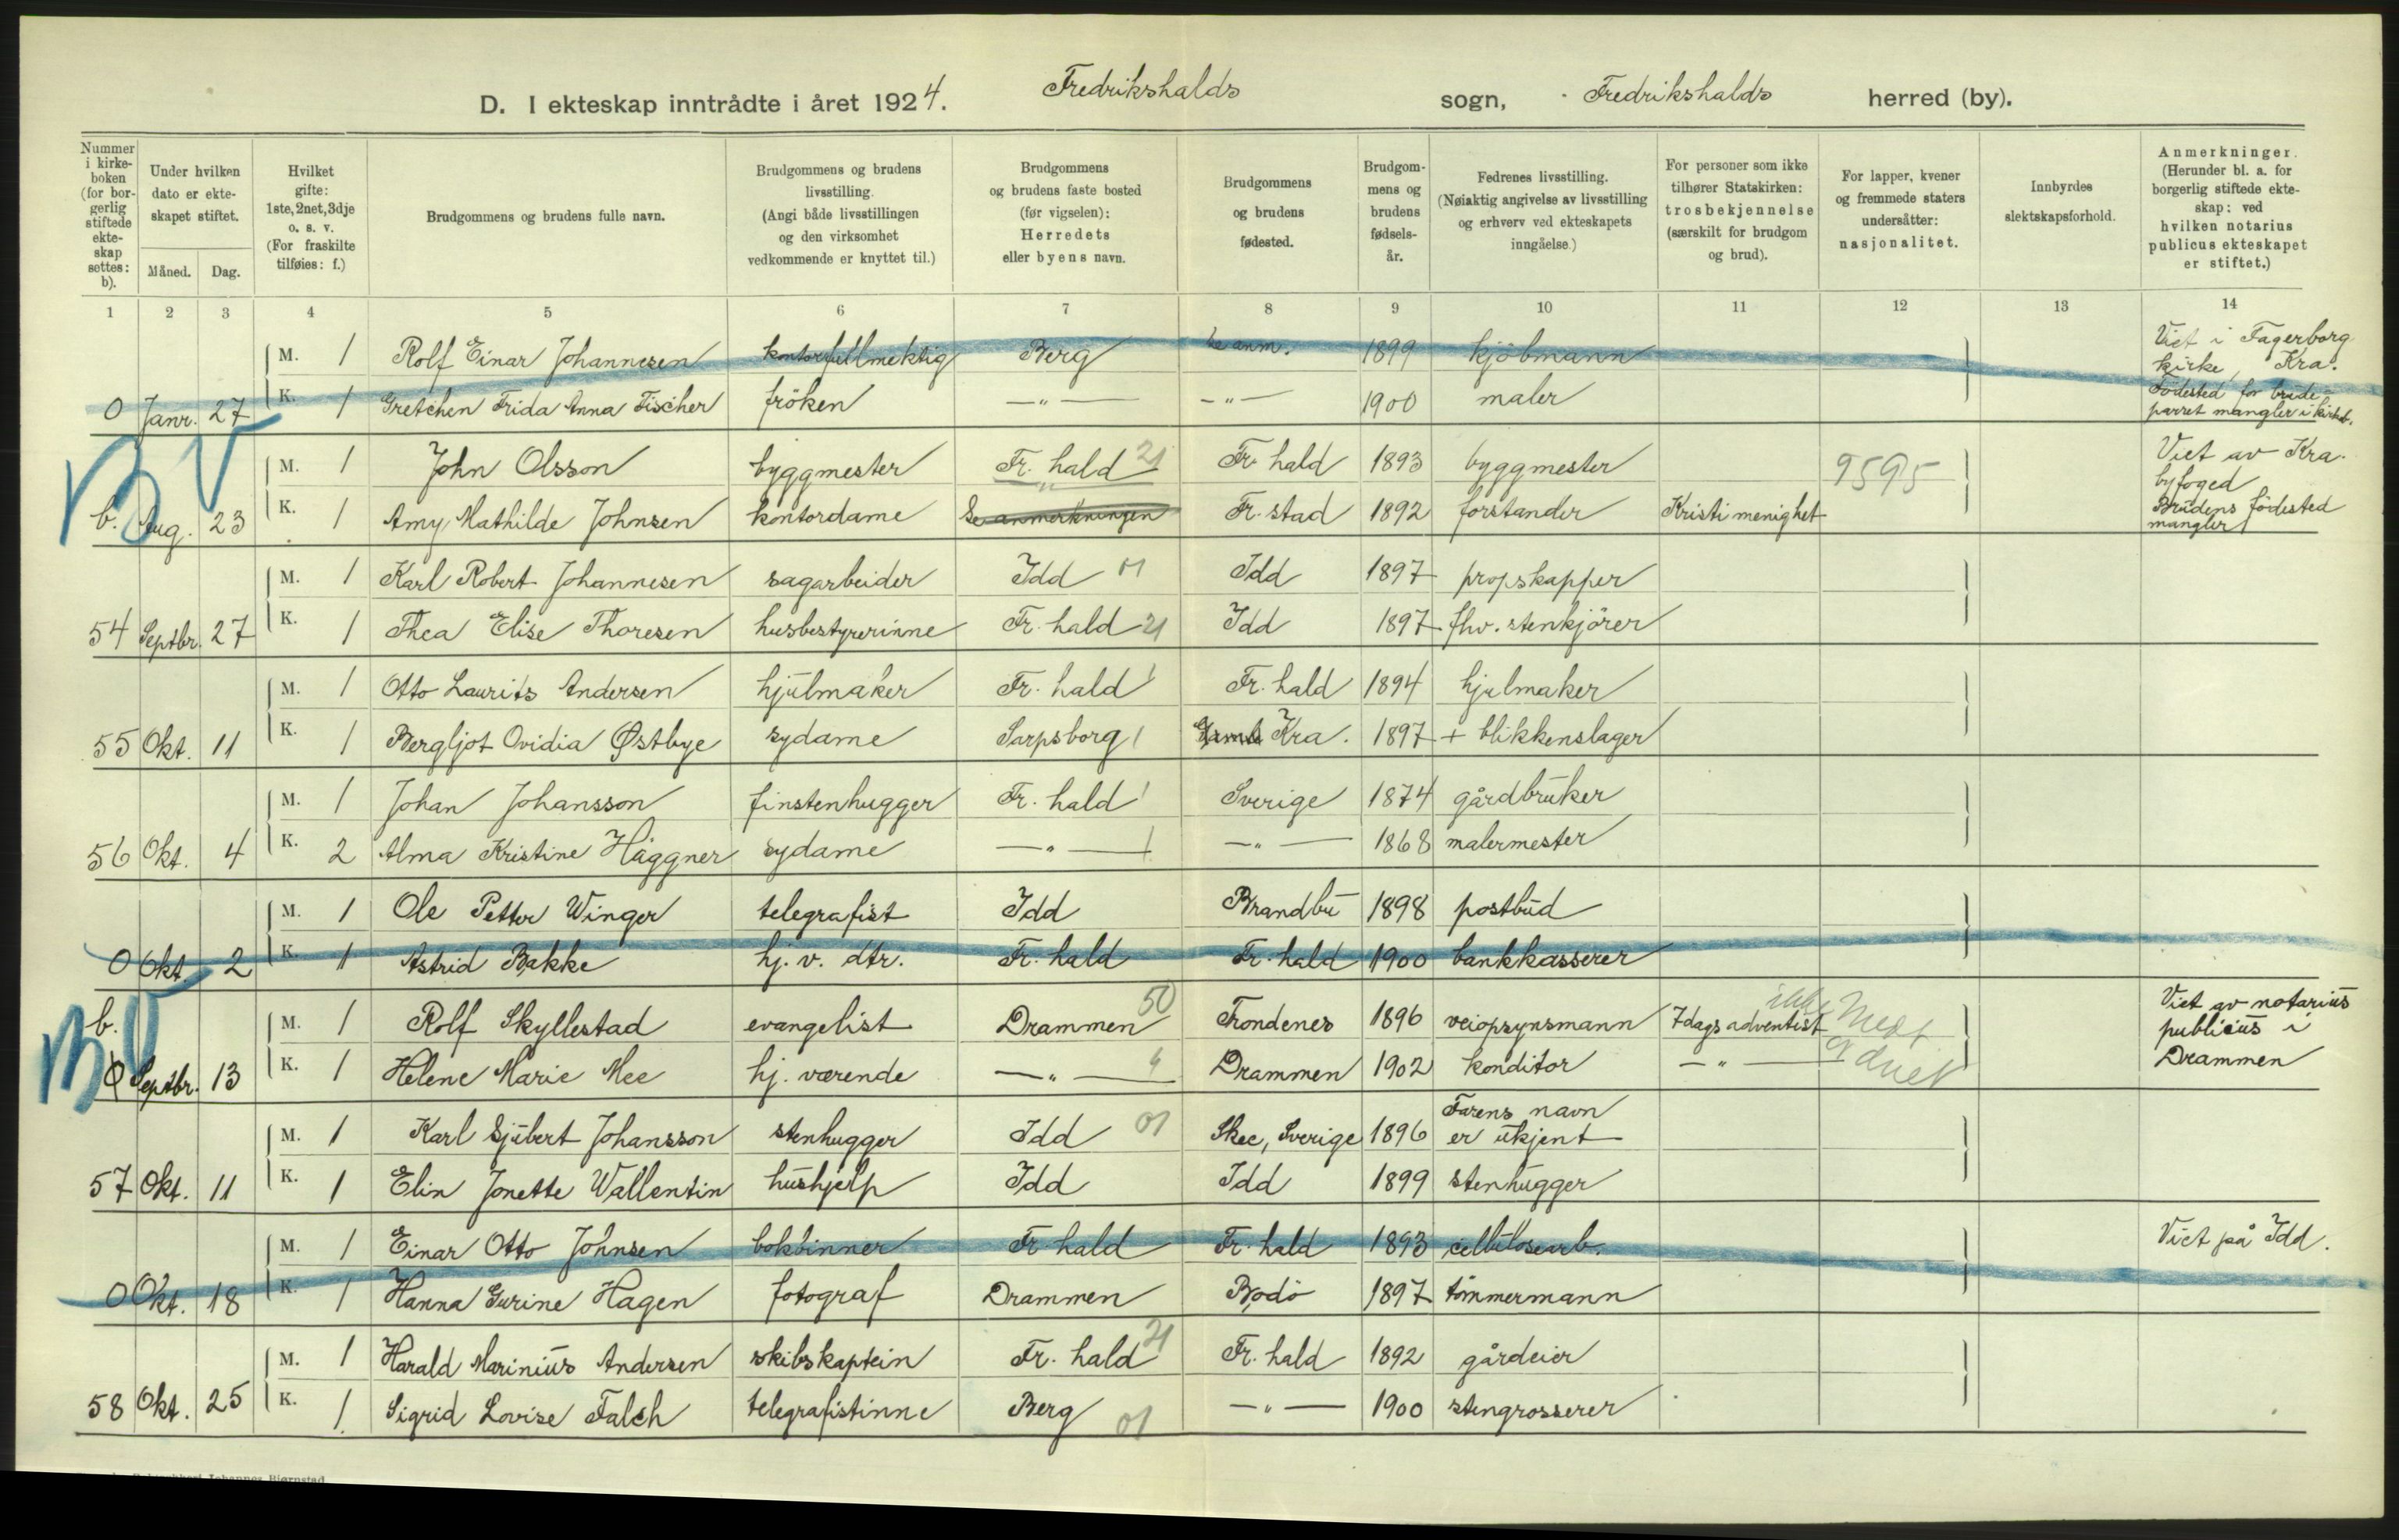 D. I ekteskap inntrådte i året 1924. Fredrikshalds sogn, Fredrikshalds herred (by).
Nummer i kirkeboken (for borgerlig stiftede ekteskap settes: b).
Under hvilken dato er ekteskapet stiftet.
Måned. Dag.
Hvilket gifte: 1ste, 2net, 3dje o. s. v. (For fraskilte tilføies: f.)
Brudgommens og brudens fulle navn.
Brudgommens og brudens livsstilling. (Angi både livsstillingen og den virksomhet vedkommende er knyttet til.)
Brudgommens og brudens faste bosted (før vigselen): Herredets eller byens navn.
Brudgommens og brudens fødested.
Brudgommens og brudens fødselsår.
Fedrenes livsstilling. (Nøiaktig angivelse av livsstilling og erhverv ved ekteskapets inngåelse.)
For personer som ikke tilhører Statskirken: trosbekjennelse (særskilt for brudgom og brud).
For lapper, kvener og fremmede staters undersåtter: nasjonalitet.
Innbyrdes slektskapsforhold.
Anmerkninger. (Herunder bl. a. for borgerlig stiftede ekteskap: ved hvilken notarius publicus ekteskapet er stiftet.)
1 2 3 4 5 6 7 8 9 10 11 12 13 14
M. 1 Rolf Einar Johannesen kontorfullmektig Berg Se anm. 1899 kjöbmann Viet i Fagerborg kirke, Kra.
0 Janr. 27 K. 1 Gretchen Frida Anna Fischer fröken —"— —"— 1900 maler Födested for brudeparret mangler i kirkeb.
M. 1 John Olsson byggmester Fr. hald 21 Fr. hald 1893 byggmester 9595 Viet av Kra. byfoged
b. Aug. 23 K. 1 Amy Mathilde Johnsen kontordame " Se anmerkningen Fr. stad 1892 forstander Kristi menighet Brudens födested mangler
M. 1 Karl Robert Johannesen sagarbeider Idd 01 Idd 1897 propskapper
54 Septbr. 27 K. 1 Thea Elise Thoresen husbestyrerinne Fr. hald 21 Idd 1897 fhv. stenkjörer
M. 1 Otto Laurits Andersen hjulmaker Fr. hald 1 Fr. hald 1894 hjulmaker
55 Okt. 11 K. 1 Bergljot Ovidia Østbye sydame Sarpsborg 1 Kra. 1897 + blikkenslager
M. 1 Johan Johansson finstenhugger Fr. hald 1 Sverige 1874 gårdbruker
56 Okt. 4 K. 2 Alma Kristine Häggner sydame —"— 1 —"— 1868 malermester
M. 1 Ole Petter Winger telegrafist Idd Brandbu 1898 postbud
0 Okt. 2 K. 1 Astrid Bakke hj. v. dtr. Fr. hald Fr. hald 1900 bankkasserer
b. M. 1 Rolf Skyllestad evangelist Drammen 50 Trondenes 1896 veiopsynsmann 7dags adventist ikke Viet av notarius publicus i
0 Septbr. 13 K. 1 Helene Marie Mee hj. værende —"— 4 Drammen 1902 konditor —"— Drammen
M. 1 Karl Sjubert Johansson stenhugger Idd 01 Skee, Sverige 1896 Farens navn er ukjent
57 Okt. 11 K. 1 Elin Jonette Wallentin hushjelp Idd Idd 1899 stenhugger
M. 1 Einar Otto Johnsen bokbinner Fr. hald Fr. hald 1893 cellulosearb. Viet på Idd.
0 Okt. 18 K. 1 Hanna Gurine Hagen fotograf Drammen Bodö 1897 tömmermann
M. 1 Harald Marinius Andersen skibskaptein Fr. hald 21 Fr. hald 1892 gårdeier
58 Okt. 25 K. 1 Sigrid Lovise Falch telegrafistinne Berg 01 —"— 1900 stengrosserer